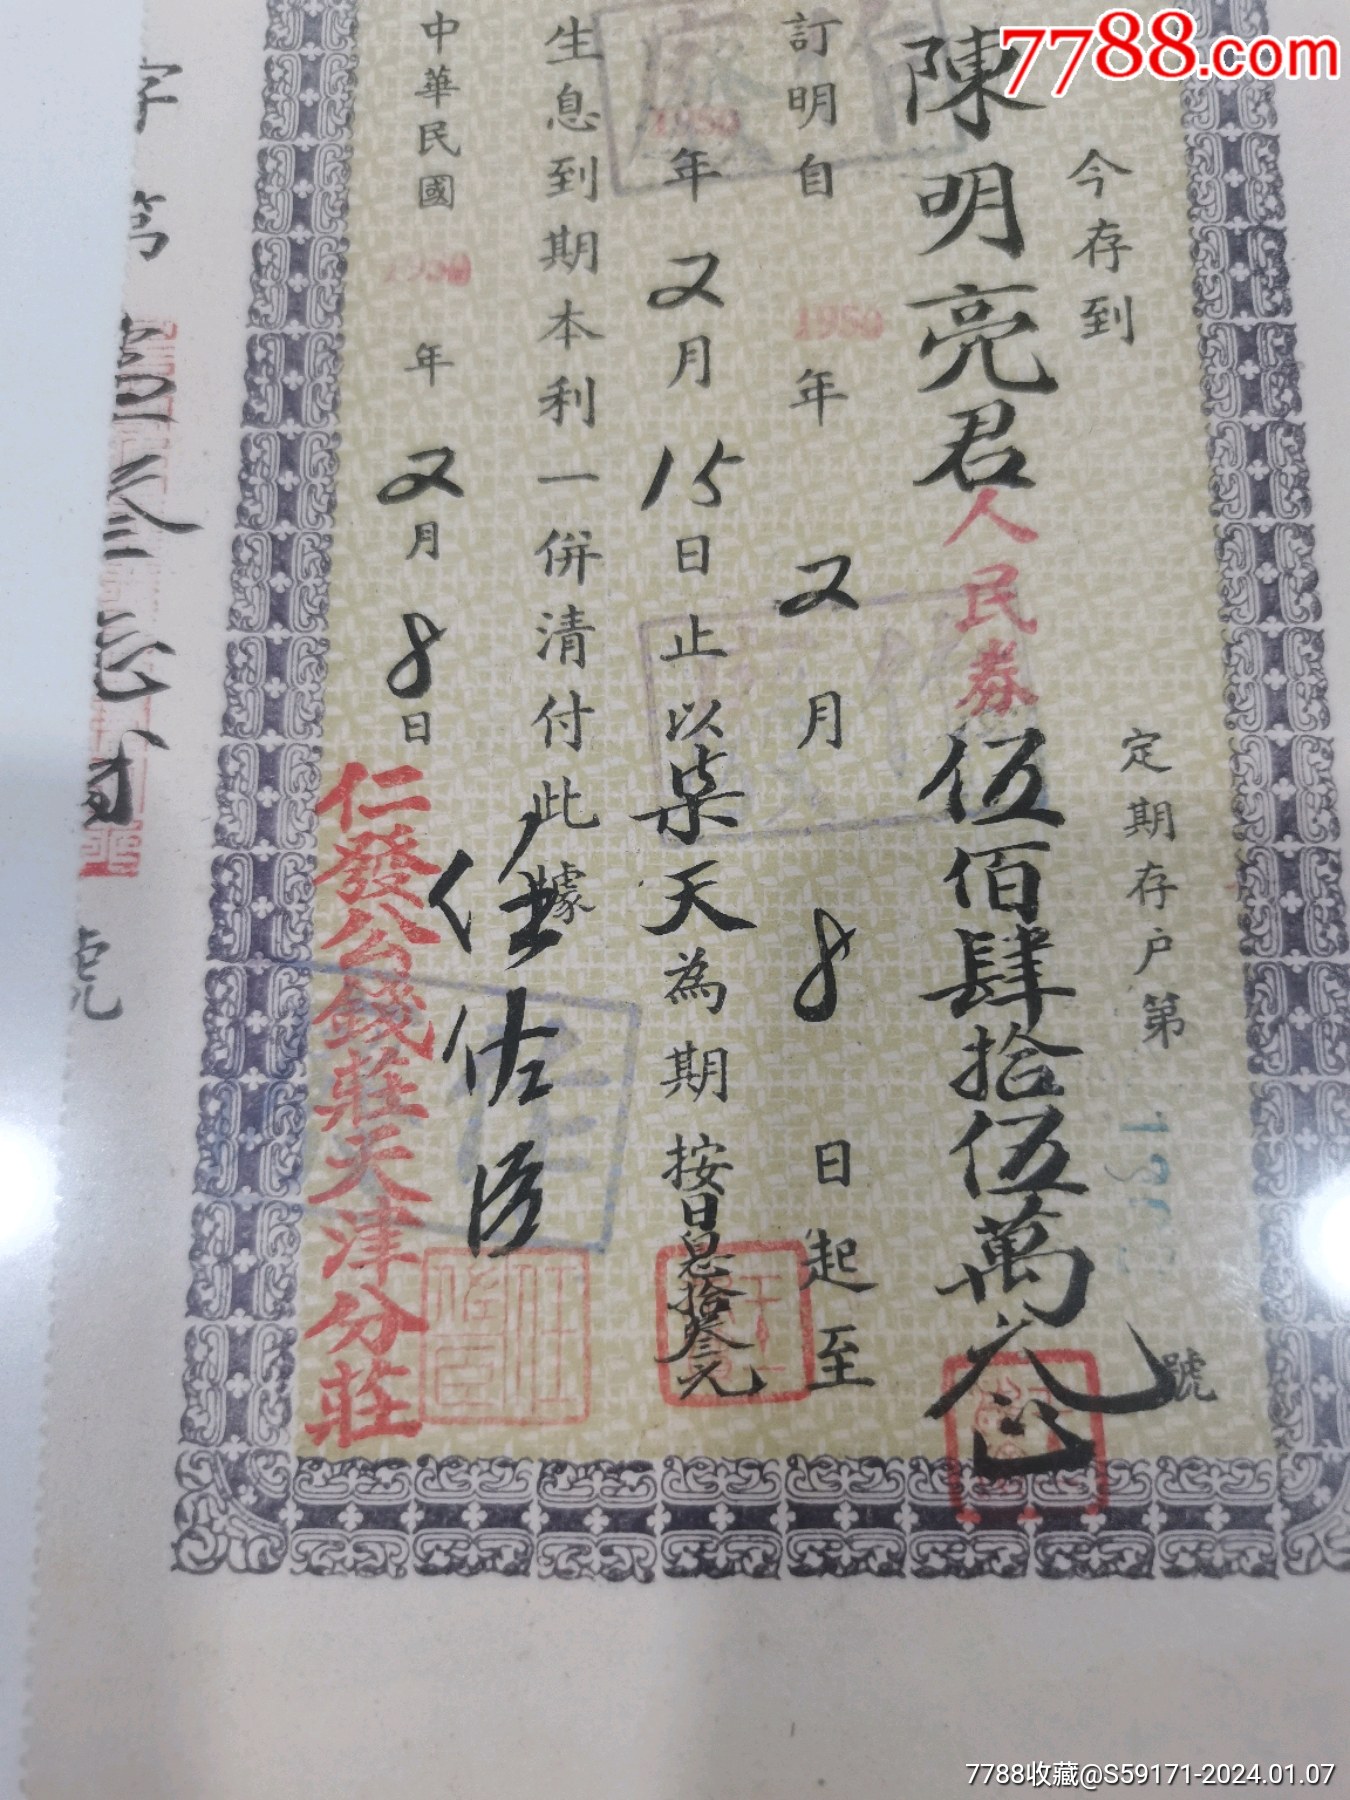 7788.com
定期存户第
號
今存到
陳明亮君人民券伍佰肆拾伍萬元
訂明自1950年又月8日起至
1950年又月15日止以柒天為期按日息拾叁元
生息到期本利一併清付此據
任佐臣
中華民國1950年又月8日
仁發公錢莊天津分莊
字第
號
7788收藏@S59171-2024.01.07